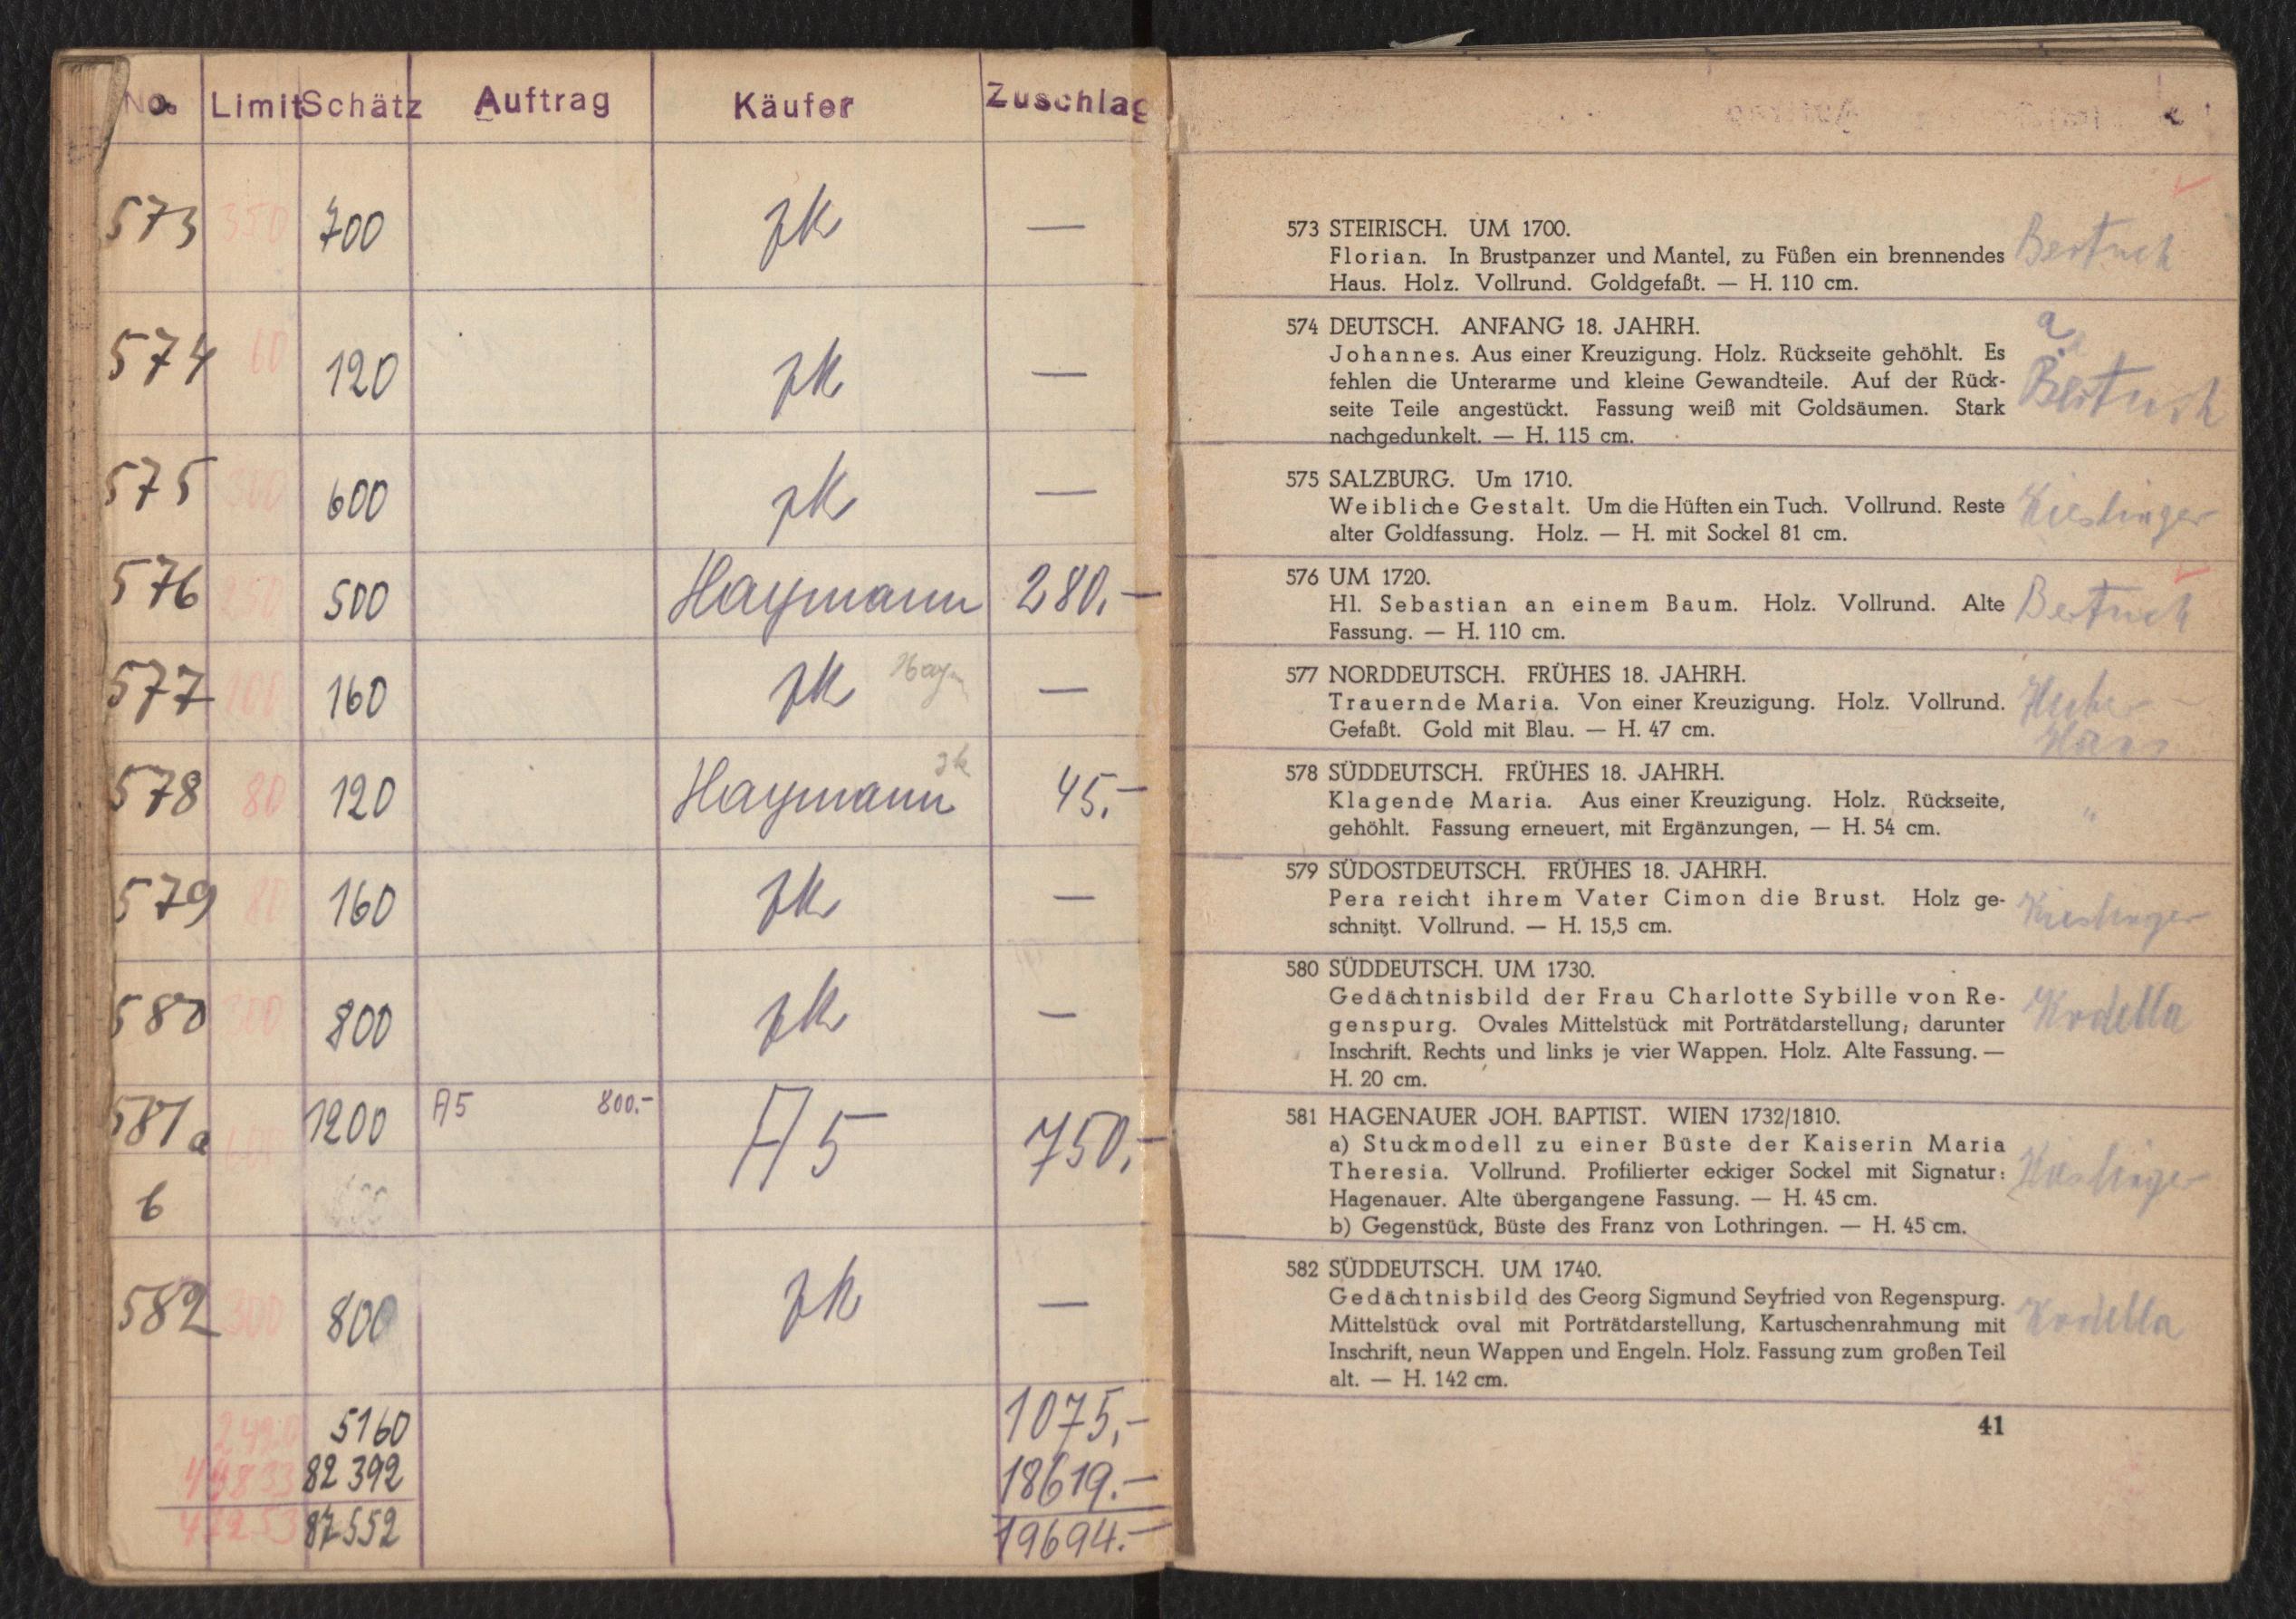 No. Limit Schätz Auftrag Käufer Zuschlag
573 350 700 zk —
574 60 120 zk —
575 300 600 zk —
576 250 500 Haymann 280.-
577 100 160 zk Haym —
578 80 120 Haymann zk 45.-
579 80 160 zk —
580 300 800 zk —
581a 600 1200 A5 800.- A5 750.-
b
582 300 800 zk —
5160 1075,-
82 392 18619.-
87 552 19694.-
573 STEIRISCH. UM 1700.
Florian. In Brustpanzer und Mantel, zu Füßen ein brennendes Bertuch
Haus. Holz. Vollrund. Goldgefaßt. — H. 110 cm.
574 DEUTSCH. ANFANG 18. JAHRH.
Johannes. Aus einer Kreuzigung. Holz. Rückseite gehöhlt. Es
fehlen die Unterarme und kleine Gewandteile. Auf der Rück- Bertuch
seite Teile angestückt. Fassung weiß mit Goldsäumen. Stark
nachgedunkelt. — H. 115 cm.
575 SALZBURG. Um 1710.
Weibliche Gestalt. Um die Hüften ein Tuch. Vollrund. Reste Kieslinger
alter Goldfassung. Holz. — H. mit Sockel 81 cm.
576 UM 1720.
Hl. Sebastian an einem Baum. Holz. Vollrund. Alte Bertuch
Fassung. — H. 110 cm.
577 NORDDEUTSCH. FRÜHES 18. JAHRH.
Trauernde Maria. Von einer Kreuzigung. Holz. Vollrund.
Gefaßt. Gold mit Blau. — H. 47 cm.
578 SÜDDEUTSCH. FRÜHES 18. JAHRH.
Klagende Maria. Aus einer Kreuzigung. Holz. Rückseite, "
gehöhlt. Fassung erneuert, mit Ergänzungen, — H. 54 cm.
579 SÜDOSTDEUTSCH. FRÜHES 18. JAHRH.
Pera reicht ihrem Vater Cimon die Brust. Holz ge- Kieslinger
schnitzt. Vollrund. — H. 15,5 cm.
580 SÜDDEUTSCH. UM 1730.
Gedächtnisbild der Frau Charlotte Sybille von Re- Kodella
genspurg. Ovales Mittelstück mit Porträtdarstellung; darunter
Inschrift. Rechts und links je vier Wappen. Holz. Alte Fassung. —
H. 20 cm.
581 HAGENAUER JOH. BAPTIST. WIEN 1732/1810.
a) Stuckmodell zu einer Büste der Kaiserin Maria
Theresia. Vollrund. Profilierter eckiger Sockel mit Signatur: Kieslinger
Hagenauer. Alte übergangene Fassung. — H. 45 cm.
b) Gegenstück, Büste des Franz von Lothringen. — H. 45 cm.
582 SÜDDEUTSCH. UM 1740.
Gedächtnisbild des Georg Sigmund Seyfried von Regenspurg.
Mittelstück oval mit Porträtdarstellung, Kartuschenrahmung mit Kodella
Inschrift, neun Wappen und Engeln. Holz. Fassung zum großen Teil
alt. — H. 142 cm.
41